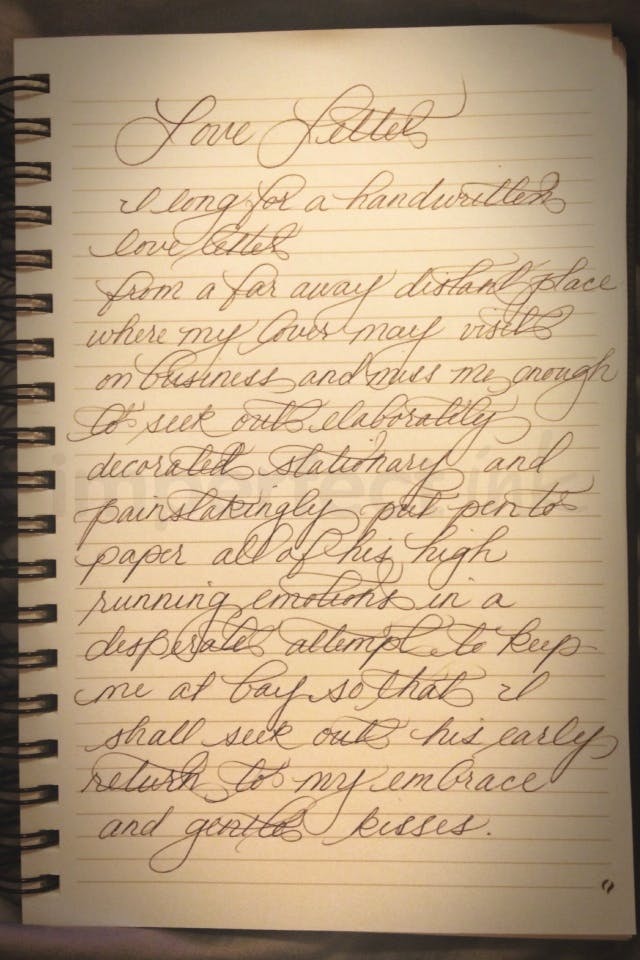 Love Letter
I long for a handwritten
love letter
from a far away distant place
where my lover may visit
on business and miss me enough
to seek out elaborately
decorated stationary and
painstakingly put pen to
paper all of his high
running emotions in a
desperate attempt to keep
me at bay so that I
shall seek out his early
return to my embrace
and gentle kisses.